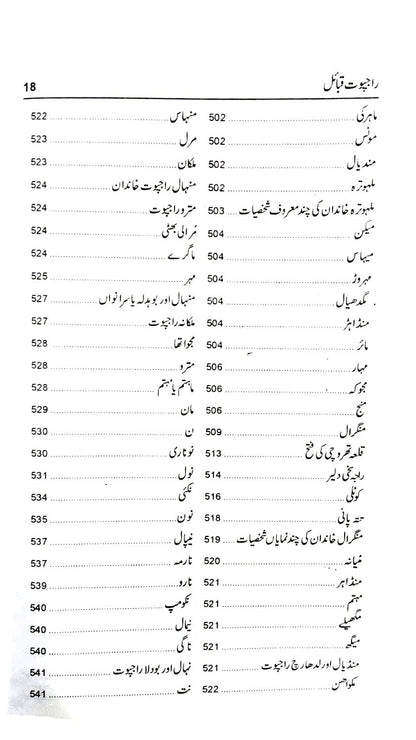 راجپوت قبائل 18
ماہرکی 502
مونس 502
مندیال 502
ملہوترہ 502
ملہوترہ خاندان کی چند معروف شخصیات 503
میکن 504
میہاس 504
مہروڑ 504
مگدھیال 504
منڈاہڑ 504
مائر 504
مہار 506
مجوکہ 506
منج 506
منگرال 509
قلعہ تھروچی کی فتح 513
راجہ سخی دلیر 514
کوٹلی 516
ہتہ پانی 518
منگرال خاندان کی چند نمایاں شخصیات 519
میانہ 520
منڈاہر 521
مہتم 521
مگھیلے 521
میگھ 521
منڈیال اور لدھارچ راجپوت 521
مکواھن 522
منہاس 522
مرل 523
ملکان 523
منہال راجپوت خاندان 524
مترو راجپوت 524
مرالی بھٹی 524
ماگرے 524
مہر 525
منہال اور بوہدلہ یا سرانواں 527
ملکانہ راجپوت 527
مجواتھا 528
مترو 528
ماہتم یا مہتم 528
مان 529
ن 530
نوناری 530
نول 531
نکئی 534
نون 535
نیپال 537
نارمہ 537
نارو 539
نکومپ 540
نیمال 540
ناگی 540
نہال اور بودلا راجپوت 541
نت 541